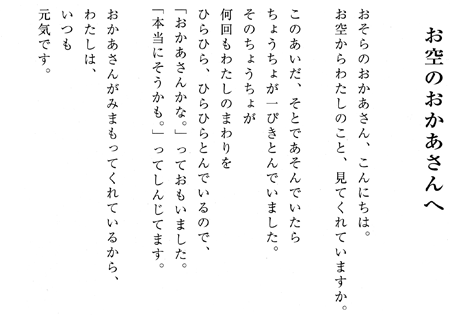 お空のおかあさんへ
おそらのおかあさん、こんにちは。
お空からわたしのこと、見てくれていますか。
このあいだ、そとであそんでいたら
ちょうちょが一ぴきとんでいました。
そのちょうちょが
何回もわたしのまわりを
ひらひら、ひらひらとんでいるので、
「おかあさんかな。」っておもいました。
「本当にそうかも。」ってしんじてます。
おかあさんがみまもってくれているから、
わたしは、
いつも
元気です。